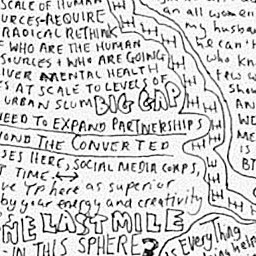 SCALE OF HUMAN
URCES-REQUIRE
RADICAL RETHINK
F WHO ARE THE HUMAN
SOURCES + WHO ARE GOING
IVER MENTAL HEALTH
ES AT SCALE TO LEVELS OF
URBAN SLUM BIG GAP
NEED TO EXPAND PARTNERSHIPS
OND THE CONVERTED
SES HERE, SOCIAL MEDIA CORPS,
T TIME. ↔
ve TP here as superior
by your energy and creativity
NE LAST MILE
- IN THIS SPHERE?
an all women
my husban
he can't
who kn
few w
Sho
AN
WE
ME
IS
BT
IS Everything